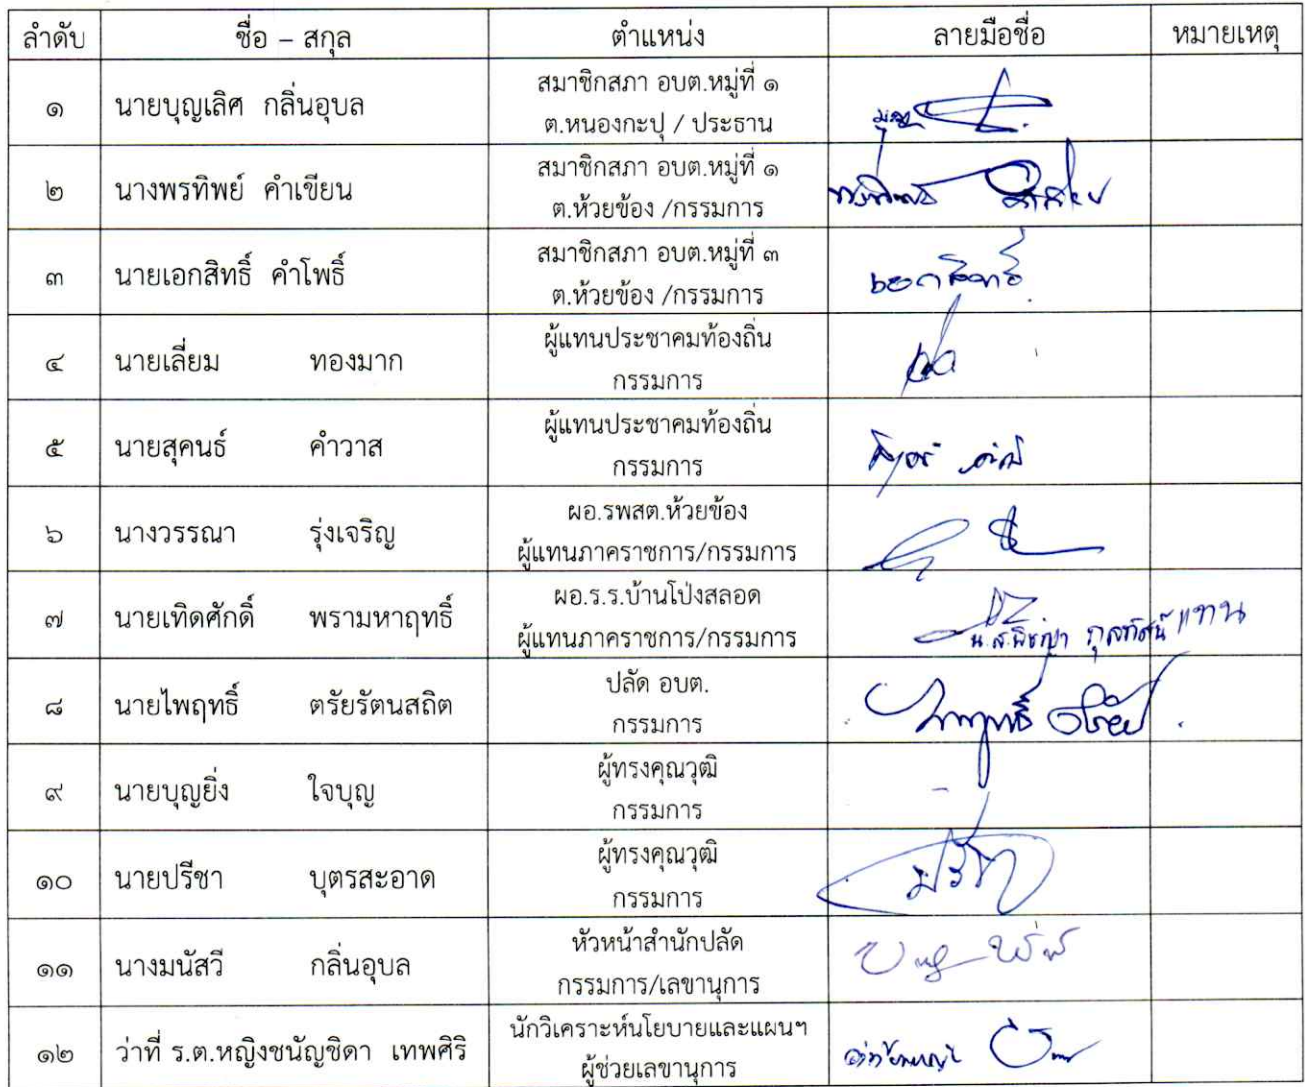 ลำดับ ชื่อ – สกุล ตำแหน่ง ลายมือชื่อ หมายเหตุ
๑ นายบุญเลิศ กลิ่นอุบล สมาชิกสภา อบต.หมู่ที่ ๑
ต.หนองกะปุ / ประธาน
๒ นางพรทิพย์ คำเขียน สมาชิกสภา อบต.หมู่ที่ ๑
ต.ห้วยข้อง /กรรมการ
๓ นายเอกสิทธิ์ คำโพธิ์ สมาชิกสภา อบต.หมู่ที่ ๓ เอกสิทธิ์
ต.ห้วยข้อง /กรรมการ
๔ นายเลี่ยม ทองมาก ผู้แทนประชาคมท้องถิ่น
กรรมการ
๕ นายสุคนธ์ คำวาส ผู้แทนประชาคมท้องถิ่น
กรรมการ
๖ นางวรรณา รุ่งเจริญ ผอ.รพสต.ห้วยข้อง
ผู้แทนภาคราชการ/กรรมการ
๗ นายเทิดศักดิ์ พรามหาฤทธิ์ ผอ.ร.ร.บ้านโป่งสลอด
ผู้แทนภาคราชการ/กรรมการ น.ส.พิชญา กุลทัศน์ แทน
๘ นายไพฤทธิ์ ตรัยรัตนสถิต ปลัด อบต.
กรรมการ
๙ นายบุญยิ่ง ใจบุญ ผู้ทรงคุณวุฒิ -
กรรมการ
๑๐ นายปรีชา บุตรสะอาด ผู้ทรงคุณวุฒิ ปรีชา
กรรมการ
๑๑ นางมนัสวี กลิ่นอุบล หัวหน้าสำนักปลัด
กรรมการ/เลขานุการ
๑๒ ว่าที่ ร.ต.หญิงชนัญชิดา เทพศิริ นักวิเคราะห์นโยบายและแผนฯ
ผู้ช่วยเลขานุการ